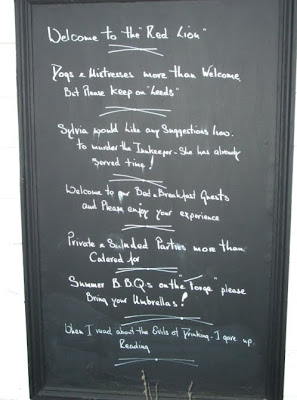 Welcome to the Red Lion"
Dogs & Mistresses more than Welcome,
But Please keep on "Leeds"
Sylvia would Like any Suggestions how.
to murder the Innkeeper - She has already
Served time!
Welcome to our Bed & Breakfast Guests
and Please enjoy your experience
Private & Secluded Parties more than
Catered for
Summer B.B.Q.s on the "Forge" please
Bring your Umbrellas!
When I read about the Evils of Drinking - I gave up.
Reading